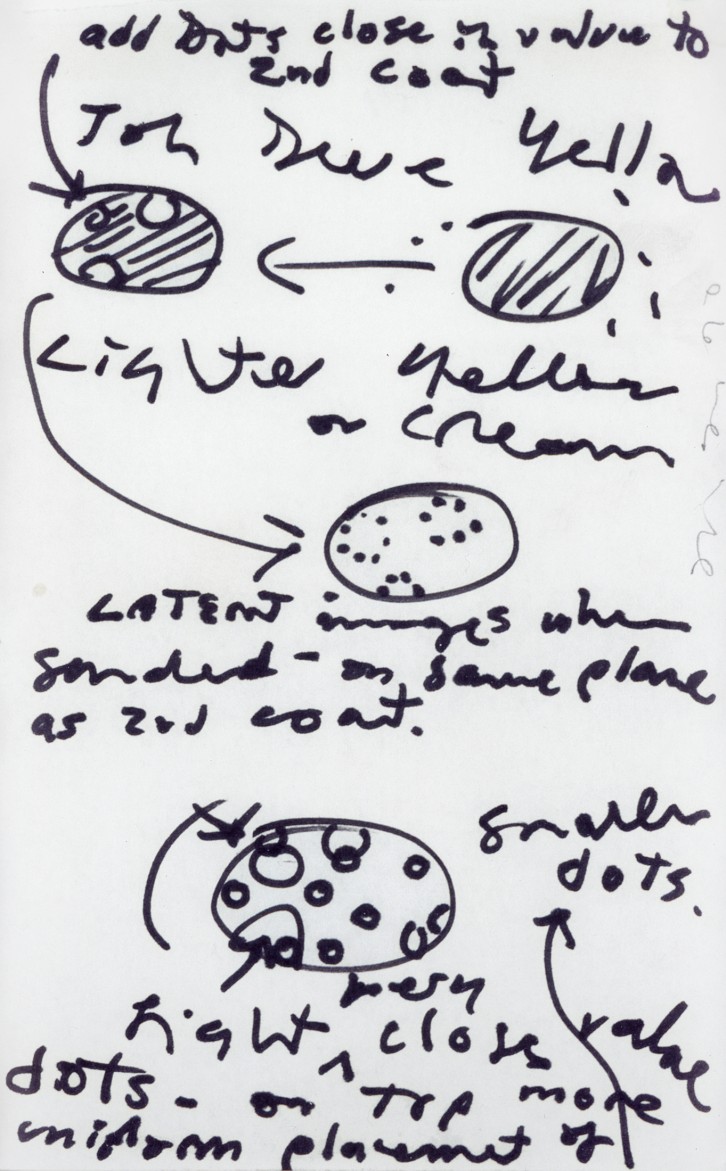 add Dots close in value to
2nd coat
Yellow
Lighter Yellow
or Cream
LATENT images when
sanded - on same plane
as 2nd coat.
smaller
dots.
very
Light ^ close
value
dots - on top more
uniform placement of